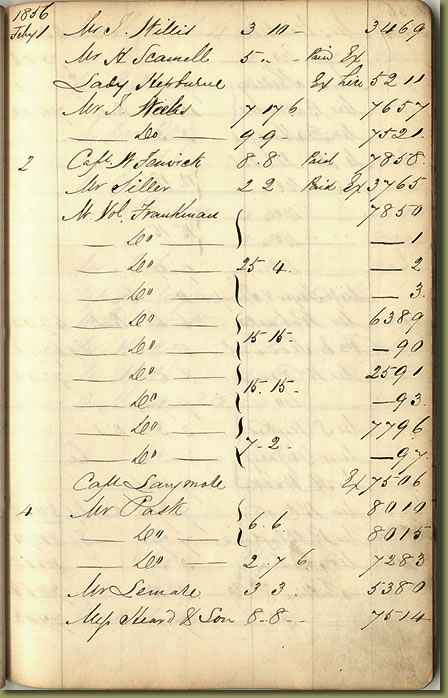 1856
Feby 1 Mr J. Willis 3 10 - 3469
Mr H Scamell 5 .. Paid Ex
Lady Hepburne Ex hire 5211
Mr J. Weeks 7 17 6 7657
— Do — 9 9 - 7521
2 Capt W Fenwick 8 . 8 Paid 7858
Mr Siller 2 2 Paid Ex 3765
M Vol. Frankman 7850
— Do — — 1
— Do — 25 4 . — 2
— Do — — 3
— Do — 6389
— Do — 15 15 - — 90
— Do — 2591
— Do — 15 . 15 . — 93
— Do — 7796
— Do — 7 - 2 - — 97
Capt Ex 7506
4 Mr Pask 8010
— Do — 6 . 6 8015
— Do — 2 . 7 6 7283
Mr Lemare 3 3 . 5380
Mess Heard & Son 8 - 8 - 7514